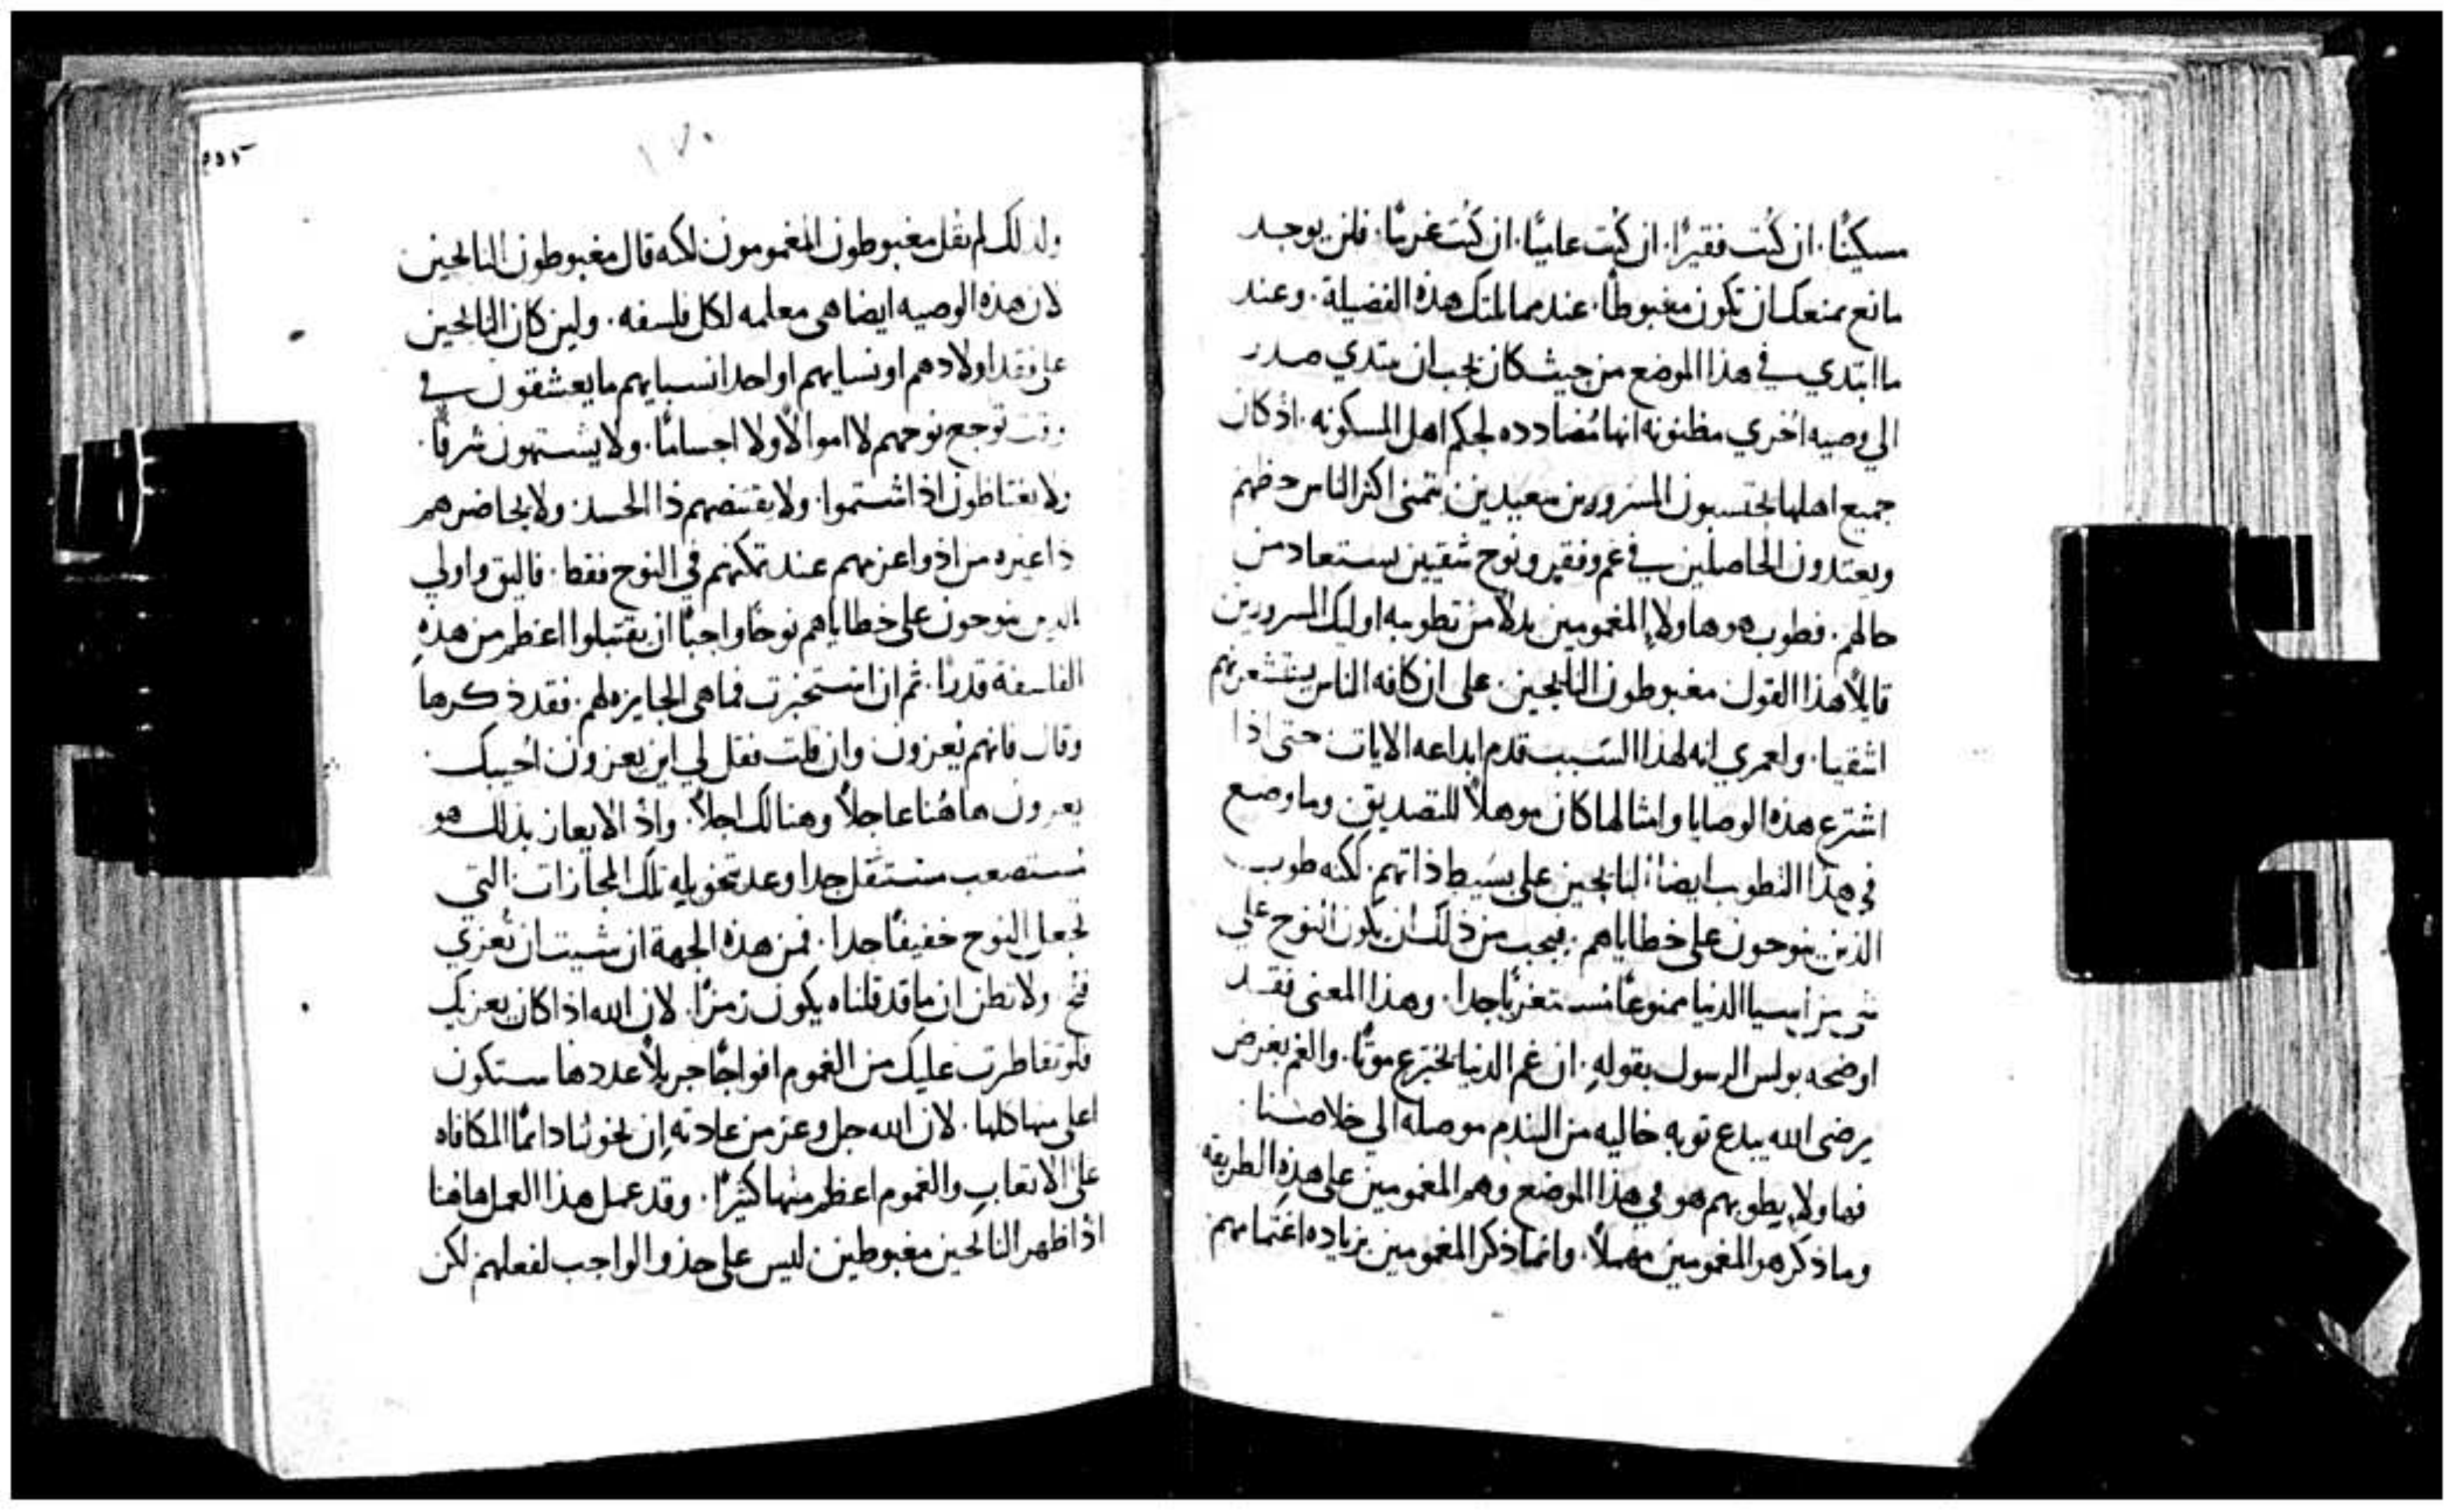 مسكينًا. ان كنت فقيرًا. ان كنت عاميًا. ان كنت غريبًا. فلن يوجد
مانع يمنعك ان تكون مغبوطًا. عندما تمتلك هذه الفضيلة. وعند
ما ابتدي في هذا الموضع من حيث كان يجب ان يبتدي صدر
الي وصيه اخري مظنونه انها مُضادده لحكم اهل المسكونه. اذ كان
جميع اهلها يحتسبون المسرورين معيدين يتمني اكثر الناس حظهم
ويعتدون الحاصلين في غم وفقر ونوح شقيين يستعاد من
حالهم. فطوب هو هاولاء المغمومين بدلاً من تطويبه اوليك المسرورين
قايلاً هذا القول مغبوطون النايحين. علي ان كافه الناس يستشعرونهم
اشقيا. ولعمري انه لهذا السبب قدم ابداعه الايات حتي اذا
اشترع هذه الوصايا وامثالها كان موهلاً للتصديق. وما وضع
في هذا التطويب ايضا النايحين علي بسيط ذاتهم. لكنه طوب
الذين ينوحون علي خطاياهم. فيجب من ذلك ان يكون النوح علي
شي من اسيا الدنيا ممنوعًا مستغربًا جدا. وهذا المعني فقد
اوضحه بولس الرسول بقوله. ان غم الدنيا يخترع موتًا. والغم بغرض
يرضي الله يبدع توبه خاليه من الندم موصله الي خلاصنا
فهاولاء يطوبهم هو في هذا الموضع وهم المغمومين علي هذه الطريقه
وما ذكر هو المغمومين مهملاً. وانما ذكر المغمومين بزياده اغتمامهم
١٧٠
ولذلك لم يقل مغبوطون المغمومون لكنه قال مغبوطون النايحين
لان هذه الوصيه ايضا هي معلمه لكل فلسفه. ولين كان النايحين
علي فقد اولادهم او نسايهم او احد انسبايهم ما يعشقون في
وقت توجع نوحهم لا اموالاً ولا اجسامًا. ولا يشتهون شرفًا.
ولا يغتاظون اذ اشتموا. ولا يقتنصهم ذا الحسد ولا يحاضرهم
ذا غيره من اذواعزيهم عند تمكنهم في النوح فقط. فاليق واولي
الذين ينوحون علي خطاياهم نوحًا واجبًا ان يقتبلوا اعظم من هذه
الفلسفة قدرًا. ثم ان استخبرت فما هي الجايزه لهم. فقد ذكرها
وقال فانهم يُعزون وان قلت فقل لي اين يعزون اُجيبك.
يعزون هاهُنا عاجلاً وهنالك اجلاً. واذ الايعاز بذلك هو
مستصعب مستثقل جدا وعد بتخويله تلك المجازات التي
تجعل النوح خفيفًا جدا. فمن هذه الجهة ان شيت ان تُعزي
فنُح ولا تظن ان ما قد قلناه يكون رمزًا. لان الله اذا كان يعزيك
فلو تقاطرت عليك من الغموم افواجًا جزيلاً عددها ستكون
اعلي منها كلها. لان الله جل وعز من عادته ان يخولنا دايمًا المكافاه
علي الاتعاب والغموم اعظم منها كثيرًا. وقد عمل هذا العمل هاهنا
اذ اظهر النايحين مغبوطين ليس علي حذو الواجب لفعلهم لكن